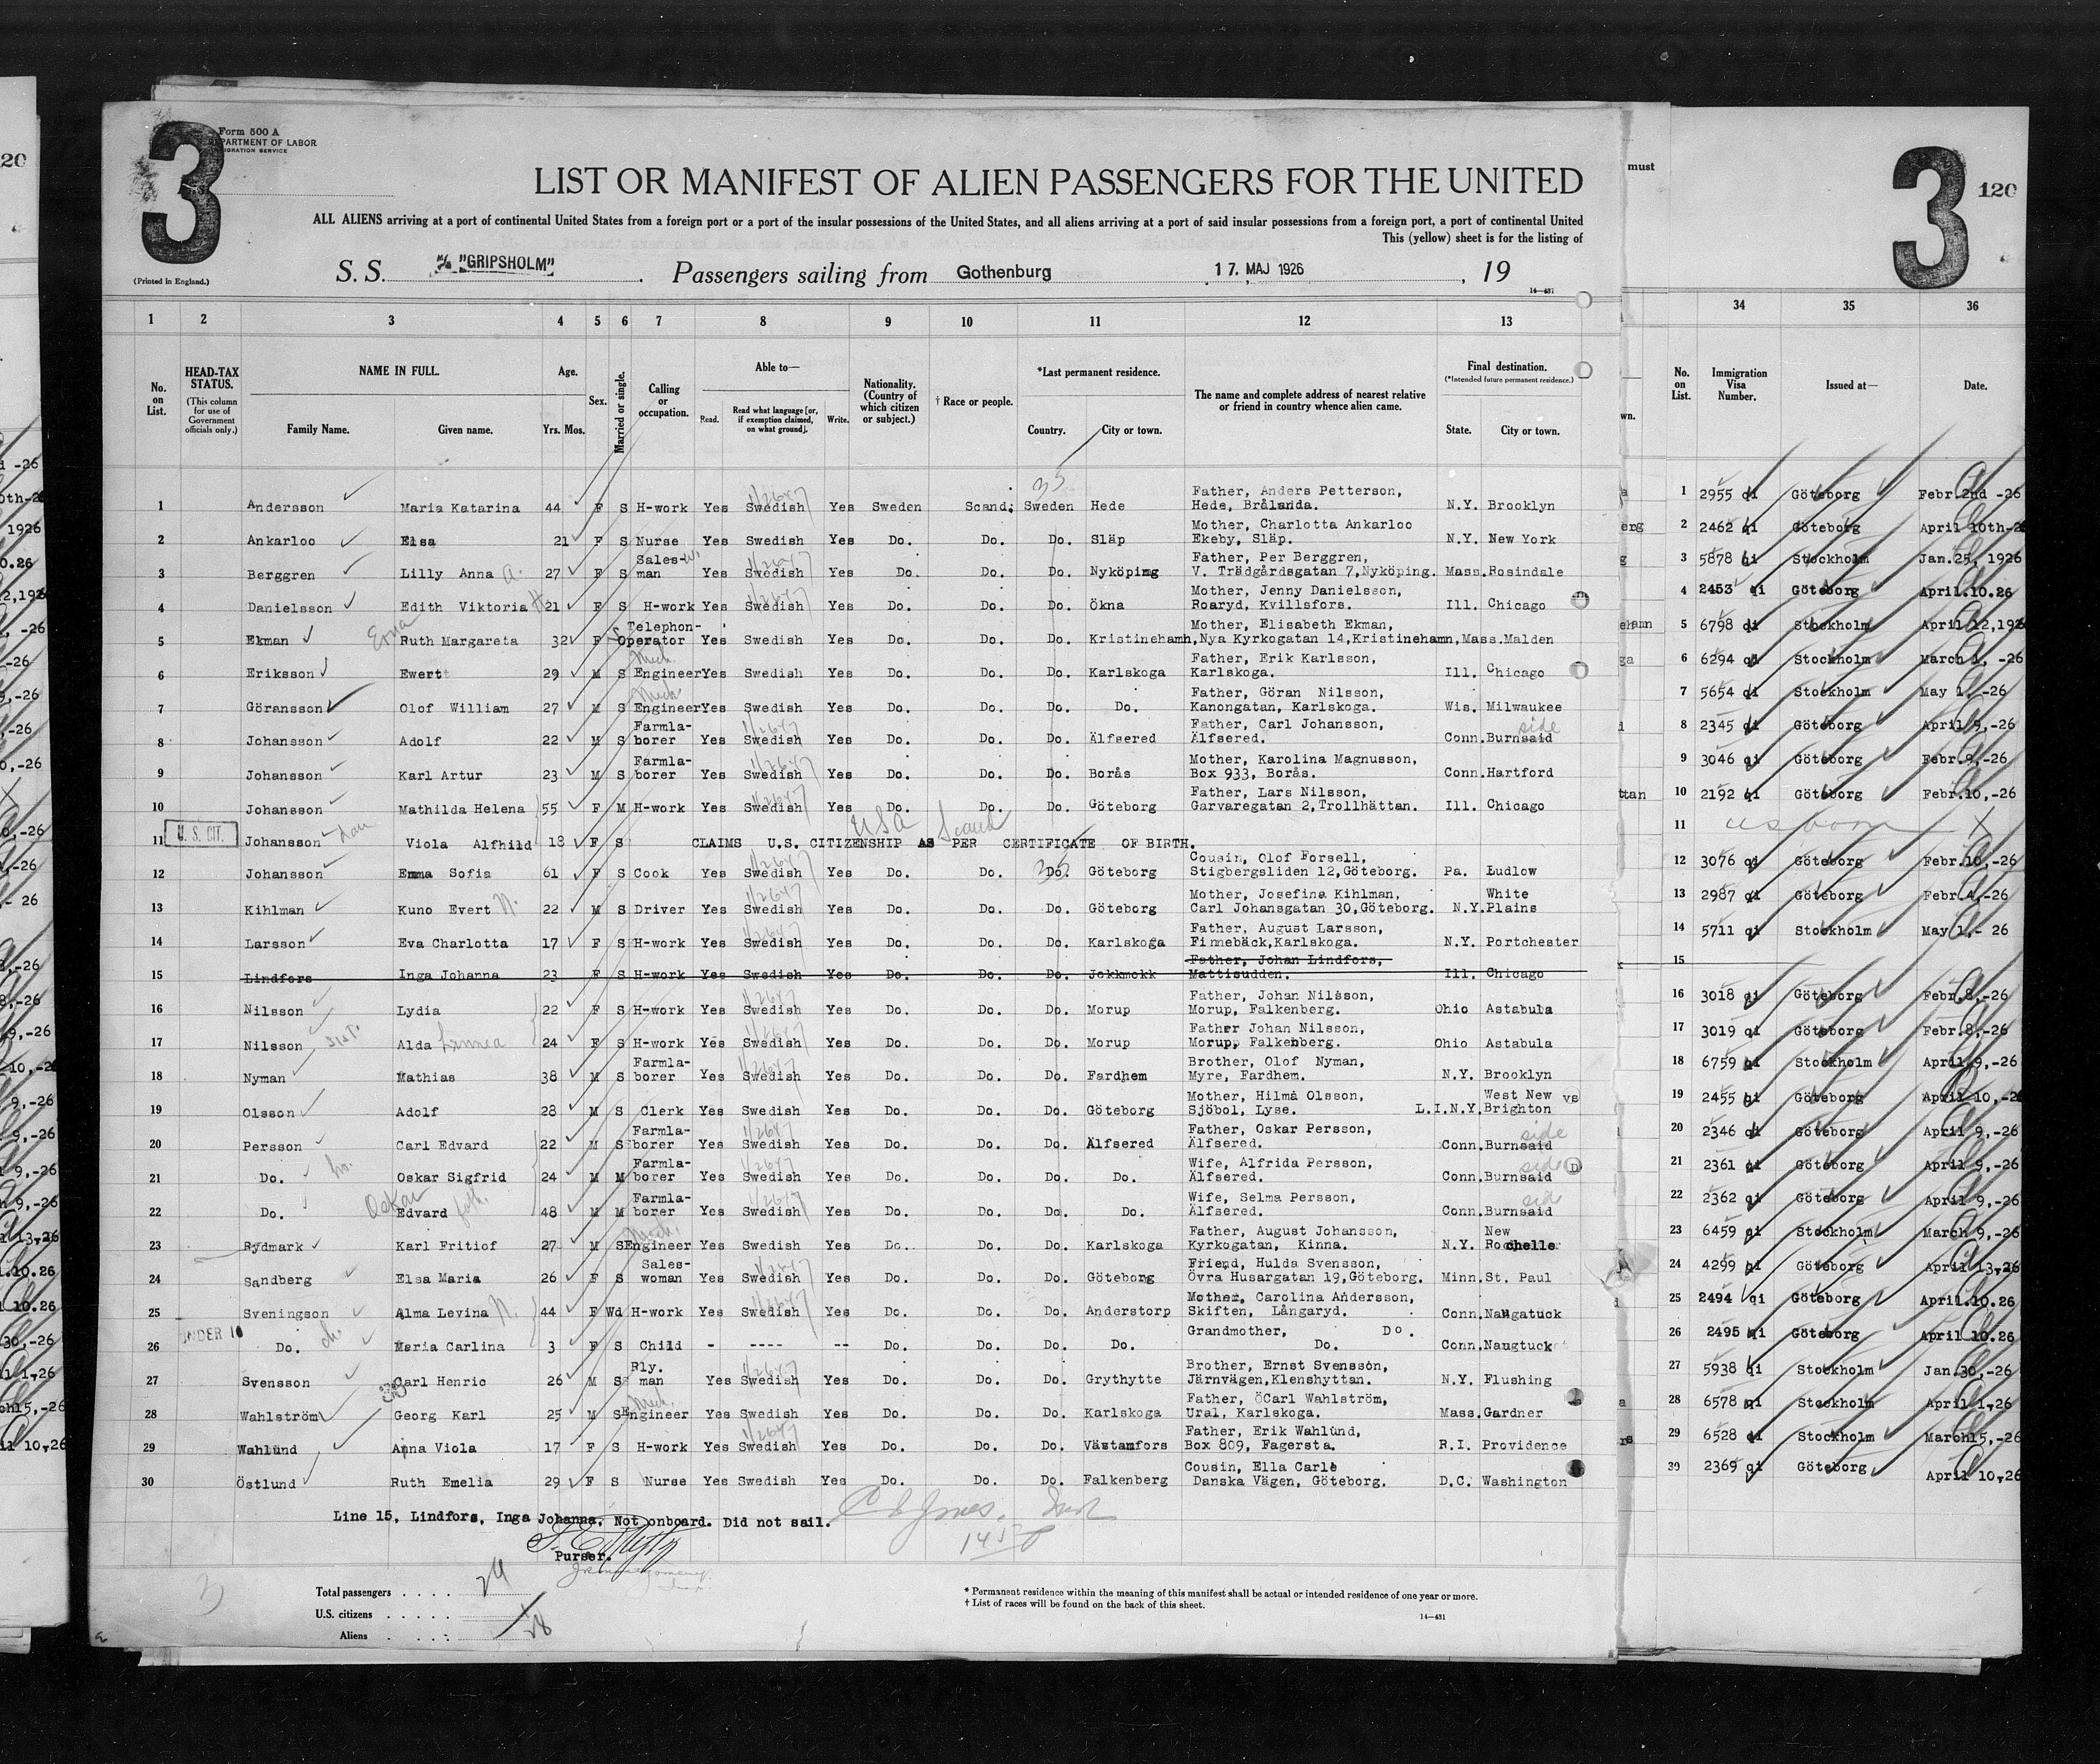 3
Form 500 A
DEPARTMENT OF LABOR
IMMIGRATION SERVICE
LIST OR MANIFEST OF ALIEN PASSENGERS FOR THE UNITED
ALL ALIENS arriving at a port of continental United States from a foreign port or a port of the insular possessions of the United States, and all aliens arriving at a port of said insular possessions from a foreign port, a port of continental United
This (yellow) sheet is for the listing of
(Printed in England.)
S. S. "GRIPSHOLM" Passengers sailing from Gothenburg 17. MAJ 1926, 19
14—431
must
3 120
1 2 3 4 5 6 7 8 9 10 11 12 13 34 35 36
No. on List. HEAD-TAX STATUS. (This column for use of Government officials only.) NAME IN FULL. Family Name. Given name. Age. Yrs. Mos. Sex. Married or single. Calling or occupation. Able to— Read. Read what language [or, if exemption claimed, on what ground]. Write. Nationality. (Country of which citizen or subject.) † Race or people. *Last permanent residence. Country. City or town. The name and complete address of nearest relative or friend in country whence alien came. Final destination. (*Intended future permanent residence.) State. City or town. No. on List. Immigration Visa Number. Issued at— Date.
Father, Anders Petterson,
1 Andersson Maria Katarina 44 F S H-work Yes Swedish Yes Sweden Scand. Sweden Hede Hede, Brålanda. N.Y. Brooklyn 1 2955 qi Göteborg Febr.2nd -26
Mother, Charlotta Ankarloo
2 Ankarloo Elsa 21 F S Nurse Yes Swedish Yes Do. Do. Do. Släp Ekeby, Släp. N.Y. New York 2 2462 qi Göteborg April 10th-26
Sales- Father, Per Berggren,
3 Berggren Lilly Anna A. 27 F S man Yes Swedish Yes Do. Do. Do. Nyköping V. Trädgårdsgatan 7,Nyköping. Mass.Rosindale 3 5878 qi Stockholm Jan.25, 1926
Mother, Jenny Danielsson,
4 Danielsson Edith Viktoria H. 21 F S H-work Yes Swedish Yes Do. Do. Do. Ökna Roaryd, Kvillsfors. Ill. Chicago 4 2453 qi Göteborg April.10.26
Erna Telephon- Mother, Elisabeth Ekman,
5 Ekman Ruth Margareta 32 F S Operator Yes Swedish Yes Do. Do. Do. Kristinehamn,Nya Kyrkogatan 14,Kristinehamn,Mass.Malden 5 6798 qi Stockholm April 12,1926
Mech. Father, Erik Karlsson,
6 Eriksson Ewert 29 M S Engineer Yes Swedish Yes Do. Do. Do. Karlskoga Karlskoga. Ill. Chicago 6 6294 qi Stockholm March 1, -26
Mech. Father, Göran Nilsson,
7 Göransson Olof William 27 M S Engineer Yes Swedish Yes Do. Do. Do. Do. Kanongatan, Karlskoga. Wis. Milwaukee 7 5654 qi Stockholm May 1. -26
Farmla- Father, Carl Johansson, side
8 Johansson Adolf 22 M S borer Yes Swedish Yes Do. Do. Do. Älfsered Älfsered. Conn.Burnsaid 8 2345 qi Göteborg April 9,-26
Farmla- Mother, Karolina Magnusson,
9 Johansson Karl Artur 23 M S borer Yes Swedish Yes Do. Do. Do. Borås Box 933, Borås. Conn.Hartford 9 3046 qi Göteborg Febr.9,-26
Father, Lars Nilsson,
10 Johansson Mathilda Helena 55 F M H-work Yes Swedish Yes Do. Do. Do. Göteborg Garvaregatan 2,Trollhättan. Ill. Chicago 10 2192 qi Göteborg Febr.10,-26
USA Scand
11 U. S. CIT. Johansson Dau Viola Alfhild 18 F S CLAIMS U.S. CITIZENSHIP AS PER CERTIFICATE OF BIRTH. 11 US born X
Cousin, Olof Forsell,
12 Johansson Emma Sofia 61 F S Cook Yes Swedish Yes Do. Do. Do. Göteborg Stigbergsliden 12,Göteborg. Pa. Ludlow 12 3076 qi Göteborg Febr.10,-26
Mother, Josefina Kihlman, White
13 Kihlman Kuno Evert N. 22 M S Driver Yes Swedish Yes Do. Do. Do. Göteborg Carl Johansgatan 30,Göteborg. N.Y.Plains 13 2987 qi Göteborg Febr.4,-26
Father, August Larsson,
14 Larsson Eva Charlotta 17 F S H-work Yes Swedish Yes Do. Do. Do. Karlskoga Finnebäck,Karlskoga. N.Y. Portchester 14 5711 qi Stockholm May 1.- 26
Father, Johan Lindfors,
15 Lindfors Inga Johanna 23 F S H-work Yes Swedish Yes Do. Do. Do. Jokkmokk Mattisudden. Ill. Chicago 15
Father, Johan Nilsson,
16 Nilsson Lydia 22 F S H-work Yes Swedish Yes Do. Do. Do. Morup Morup, Falkenberg. Ohio Astabula 16 3018 qi Göteborg Febr.8,-26
Father Johan Nilsson,
17 Nilsson sist. Alda Linnea 24 F S H-work Yes Swedish Yes Do. Do. Do. Morup Morup, Falkenberg. Ohio Astabula 17 3019 qi Göteborg Febr.8,-26
Farmla- Brother, Olof Nyman,
18 Nyman Mathias 38 M S borer Yes Swedish Yes Do. Do. Do. Fardhem Myre, Fardhem. N.Y. Brooklyn 18 6759 qi Stockholm April 9,-26
Mother, Hilma Olsson, West New vs
19 Olsson Adolf 28 M S Clerk Yes Swedish Yes Do. Do. Do. Göteborg Sjöbol, Lyse. L.I.N.Y.Brighton 19 2455 qi Göteborg April 10,-26
Farmla- Father, Oskar Persson, side
20 Persson Carl Edvard 22 M S borer Yes Swedish Yes Do. Do. Do. Älfsered Älfsered. Conn.Burnsaid 20 2346 qi Göteborg April 9,-26
Farmla- Wife, Alfrida Persson, side D
21 Do. bro. Oskar Sigfrid 24 M M borer Yes Swedish Yes Do. Do. Do. Do. Älfsered. Conn.Burnsaid 21 2361 qi Göteborg April 9,-26
Oskar Farmla- Wife, Selma Persson, side
22 Do. Edvard fath. 48 M M borer Yes Swedish Yes Do. Do. Do. Do. Älfsered. Conn.Burnsaid 22 2362 qi Göteborg April 9,-26
Mech. Father, August Johansson, New
23 Rydmark Karl Fritiof 27 M S Engineer Yes Swedish Yes Do. Do. Do. Karlskoga Kyrkogatan, Kinna. N.Y. Rochelle 23 6459 qi Stockholm March 9,-26
Sales- Friend, Hulda Svensson,
24 Sandberg Elsa Maria 26 F S woman Yes Swedish Yes Do. Do. Do. Göteborg Övra Husargatan 19,Göteborg. Minn.St. Paul 24 4299 qi Göteborg April 13,-26
Mother, Carolina Andersson,
25 Sveningson Alma Levina N. 44 F Wd H-work Yes Swedish Yes Do. Do. Do. Anderstorp Skiften, Långaryd. Conn.Naugatuck 25 2494 qi Göteborg April.10.26
UNDER 16 Grandmother, Do.
26 Do. ch. Maria Carlina 3 F S Child - ---- -- Do. Do. Do. Do. Do. Conn.Naugtuck 26 2495 qi Göteborg April 10.26
Rly. Brother, Ernst Svensson,
27 Svensson Carl Henric 26 M S man Yes Swedish Yes Do. Do. Do. Grythytte Järnvägen,Klenshyttan. N.Y. Flushing 27 5938 qi Stockholm Jan.30,-26
Mech. Father, Carl Wahlström,
28 Wahlström Georg Karl 25 M S Engineer Yes Swedish Yes Do. Do. Do. Karlskoga Ural, Karlskoga. Mass.Gardner 28 6578 qi Stockholm April 1,-26
Father, Erik Wahlund,
29 Wahlund Anna Viola 17 F S H-work Yes Swedish Yes Do. Do. Do. Västamfors Box 809, Fagersta. R.I. Providence 29 6528 qi Stockholm March15,-26
Cousin, Ella Carle
30 Östlund Ruth Emelia 29 F S Nurse Yes Swedish Yes Do. Do. Do. Falkenberg Danska Vägen, Göteborg. D.C. Washington 30 2369 qi Göteborg April 10,-26
Line 15, Lindfors, Inga Johanna, Not onboard. Did not sail.
Purser.
Total passengers . . . .
U.S. citizens . . . . .
Aliens . . . . 28
* Permanent residence within the meaning of this manifest shall be actual or intended residence of one year or more.
† List of races will be found on the back of this sheet.
14—431